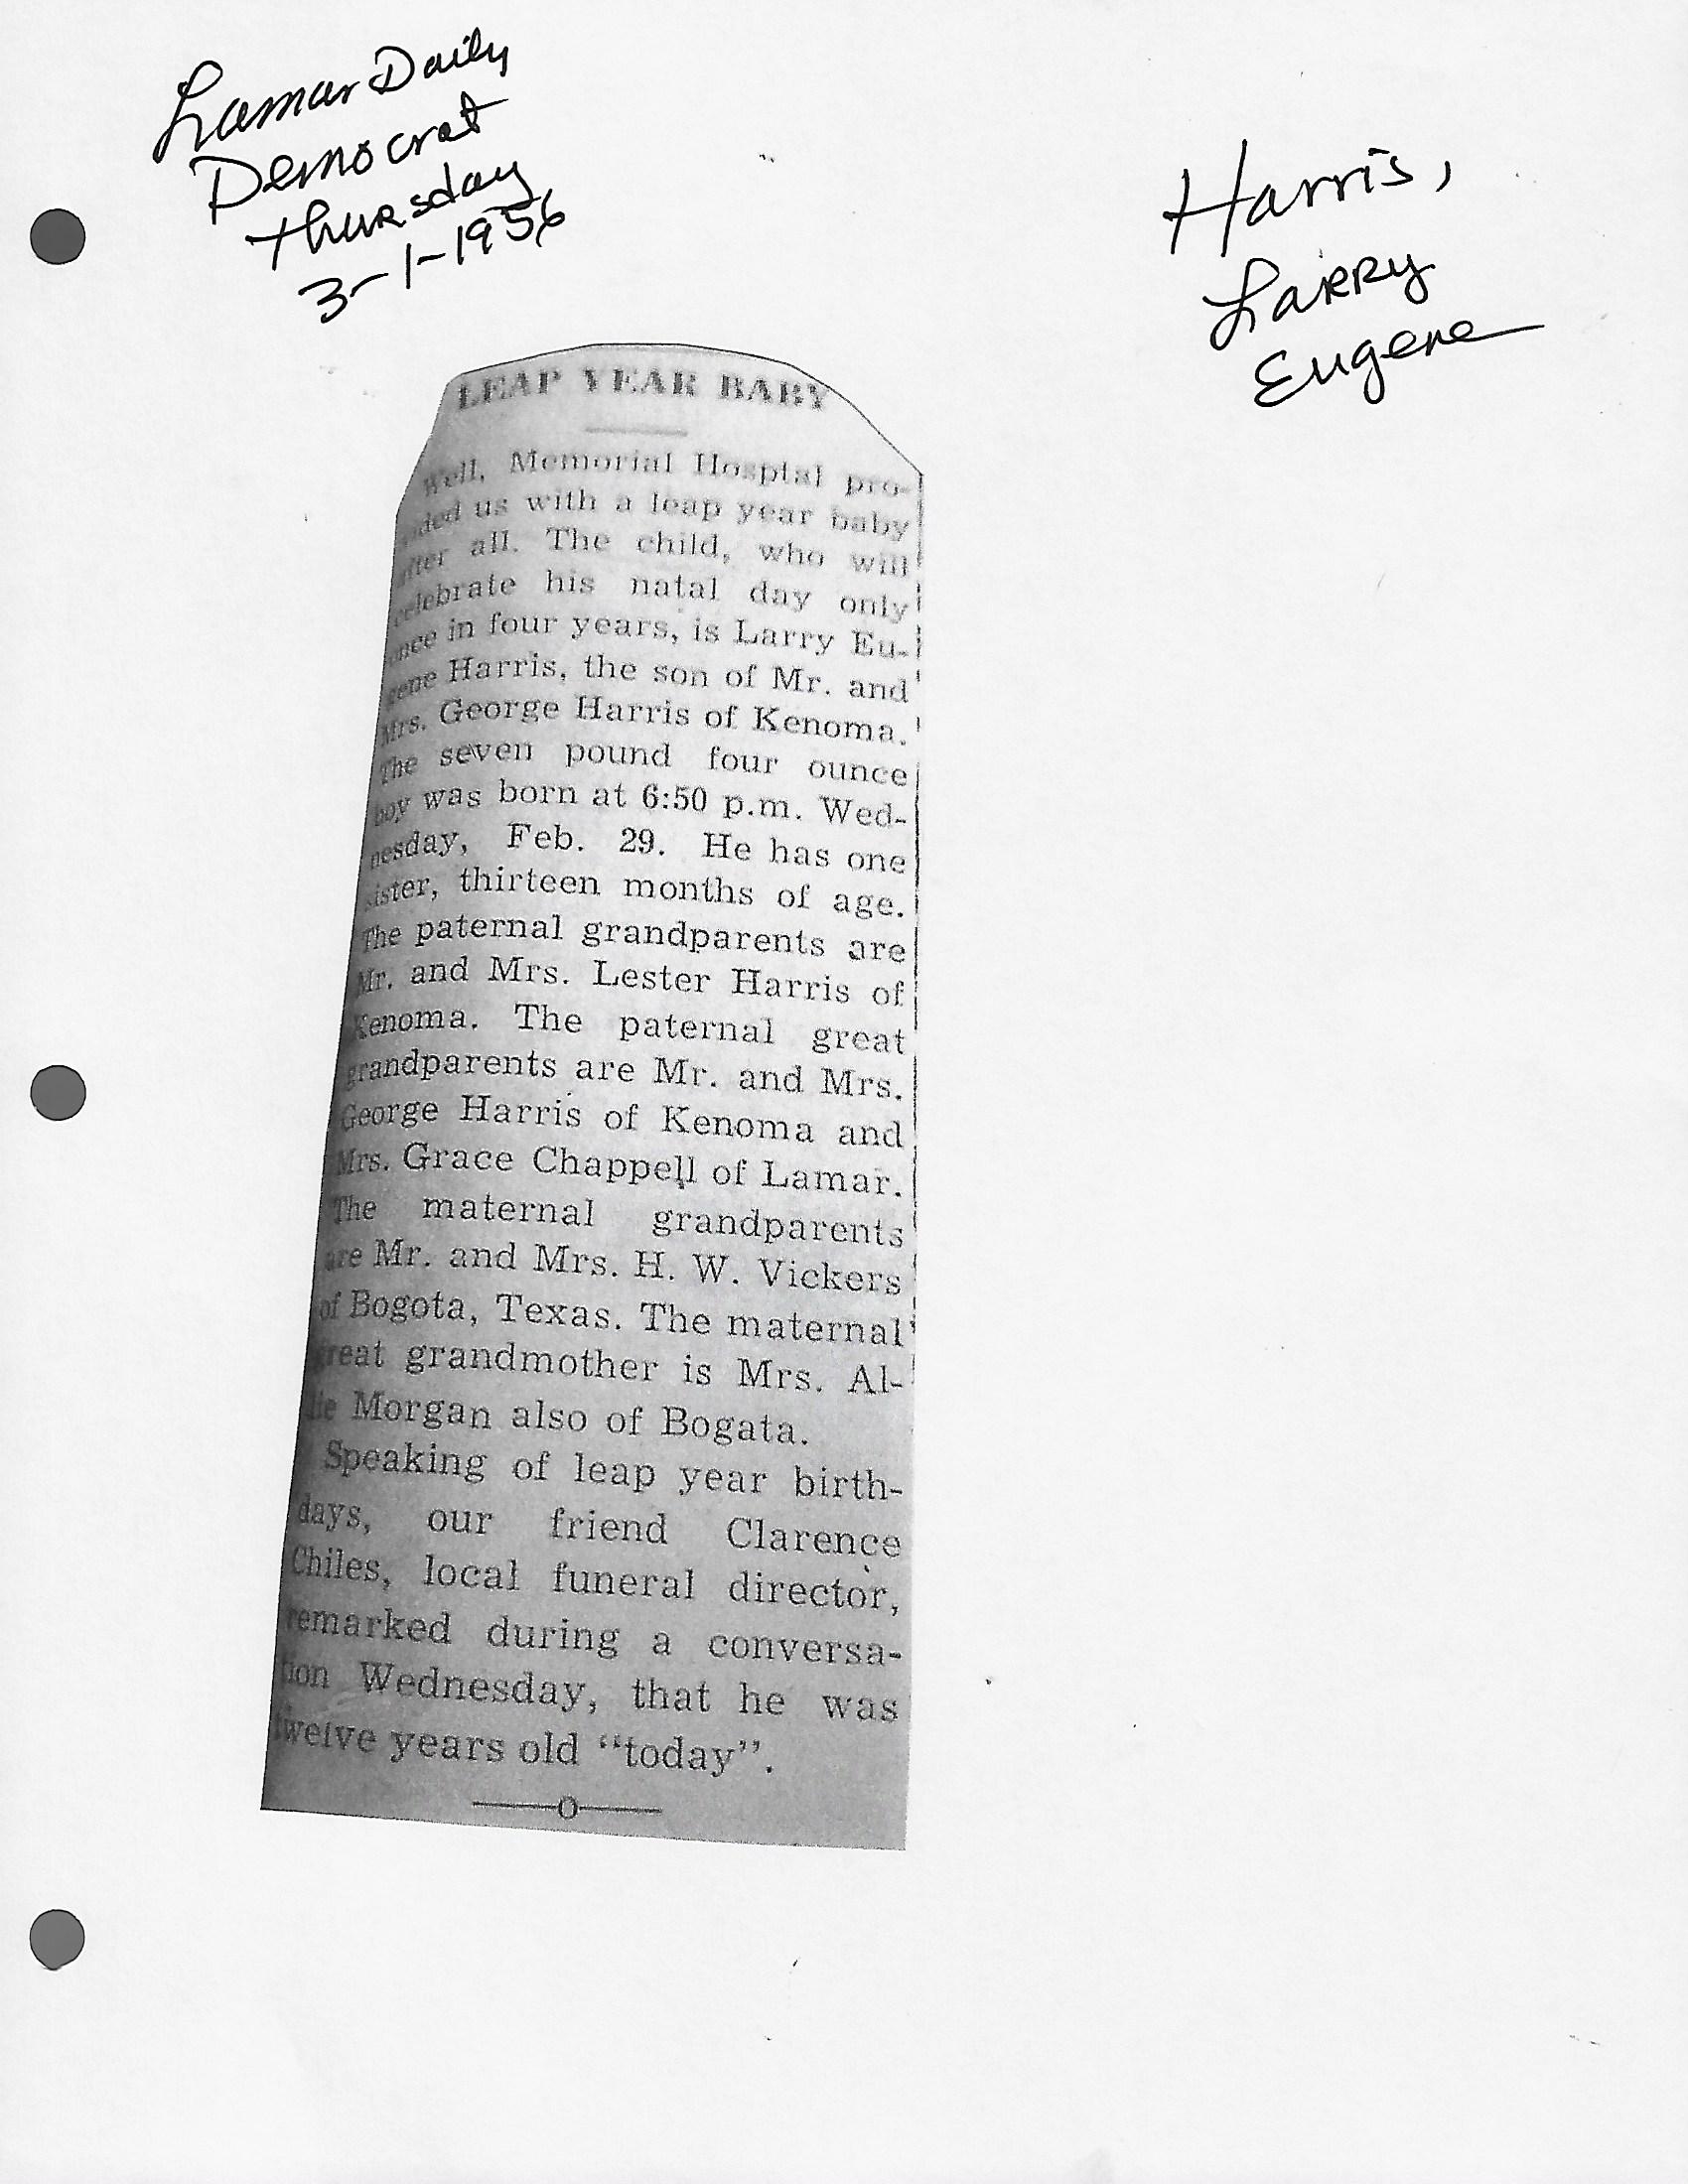 Lamar Daily
Democrat
Thursday
3-1-1956
Harris,
Larry
Eugene
LEAP YEAR BABY
Well, Memorial Hosptal pro-
vided us with a leap year baby
after all. The child, who will
celebrate his natal day only
once in four years, is Larry Eu-
gene Harris, the son of Mr. and
Mrs. George Harris of Kenoma.
The seven pound four ounce
boy was born at 6:50 p.m. Wed-
nesday, Feb. 29. He has one
sister, thirteen months of age.
The paternal grandparents are
Mr. and Mrs. Lester Harris of
Kenoma. The paternal great
grandparents are Mr. and Mrs.
George Harris of Kenoma and
Mrs. Grace Chappell of Lamar.
The maternal grandparents
are Mr. and Mrs. H. W. Vickers
of Bogota, Texas. The maternal
great grandmother is Mrs. Al-
lie Morgan also of Bogata.
Speaking of leap year birth-
days, our friend Clarence
Chiles, local funeral director,
remarked during a conversa-
tion Wednesday, that he was
twelve years old "today".